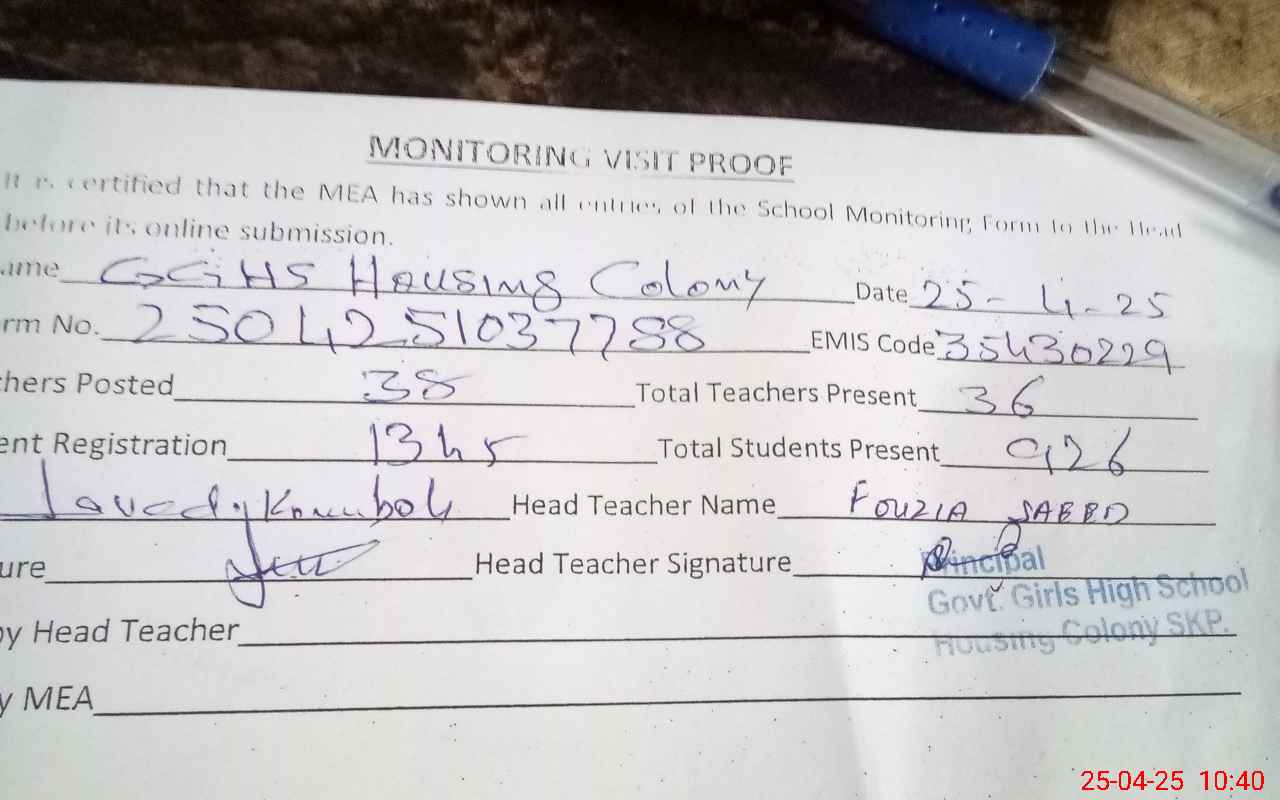 MONITORING VISIT PROOF
It is certified that the MEA has shown all entries of the School Monitoring Form to the Head
before its online submission.
ame GGHS Housing Colony Date 25-4-25
rm No. 2504251037788 EMIS Code 35430229
hers Posted 38 Total Teachers Present 36
ent Registration 1345 Total Students Present 926
Javed Head Teacher Name FOUZIA SAEED
ure Head Teacher Signature
Principal
Govt. Girls High School
Housing Colony SKP.
by Head Teacher
y MEA
25-04-25 10:40